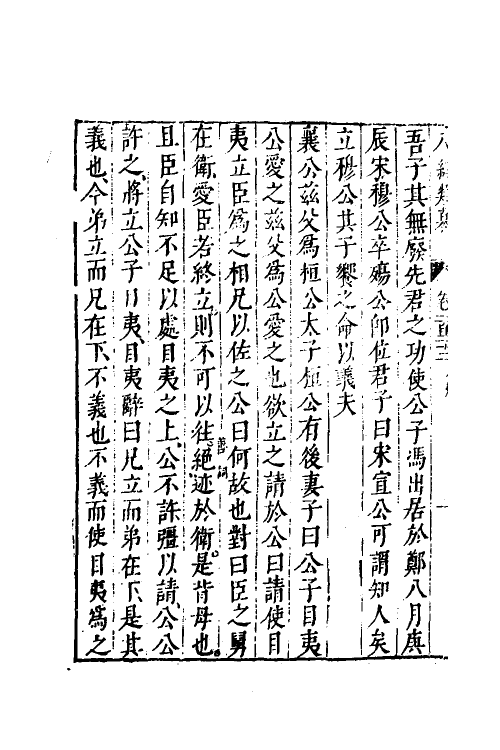 吾子其無廢先君之功使公子馮出居於鄭八月庚
辰宋穆公卒殤公卽位君子曰宋宣公可謂知人矣
立穆公其子饗之命以義夫
襄公茲父爲桓公太子桓公有後妻子曰公子目夷
公愛之茲父爲公愛之也欲立之請於公曰請使目
夷立臣爲之相兄以佐之公曰何故也對曰臣之舅
在衛愛臣若終立則不可以往絕迹於衛是背母也
善詞
且臣自知不足以處目夷之上公不許彊以請公公
許之將立公子目夷目夷辭曰兄立而弟在下是其
義也今弟立而兄在下不義也不義而使目夷爲之